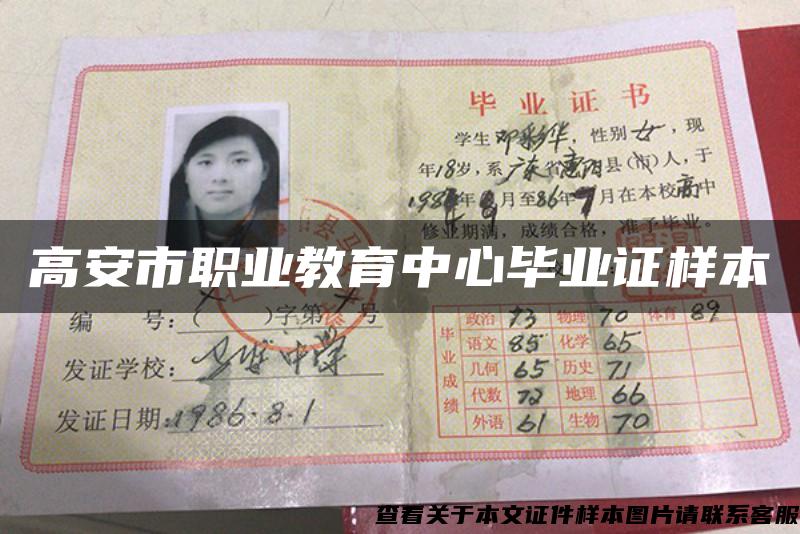 毕业证书
学生邓彩华，性别女，现
年18岁，系广东省惠阳县（市）人，于
月至86年7月在本校高中
修业期满，成绩合格，准予毕业。
高安市职业教育中心毕业证样本
编 号：( )字第 号
发证学校：中学
发证日期：1986.8.1
毕业成绩
政治 73 物理 70 体育 89
语文 85 化学 65
几何 65 历史 71
代数 72 地理 66
外语 61 生物 70
查看关于本文证件样本图片请联系客服